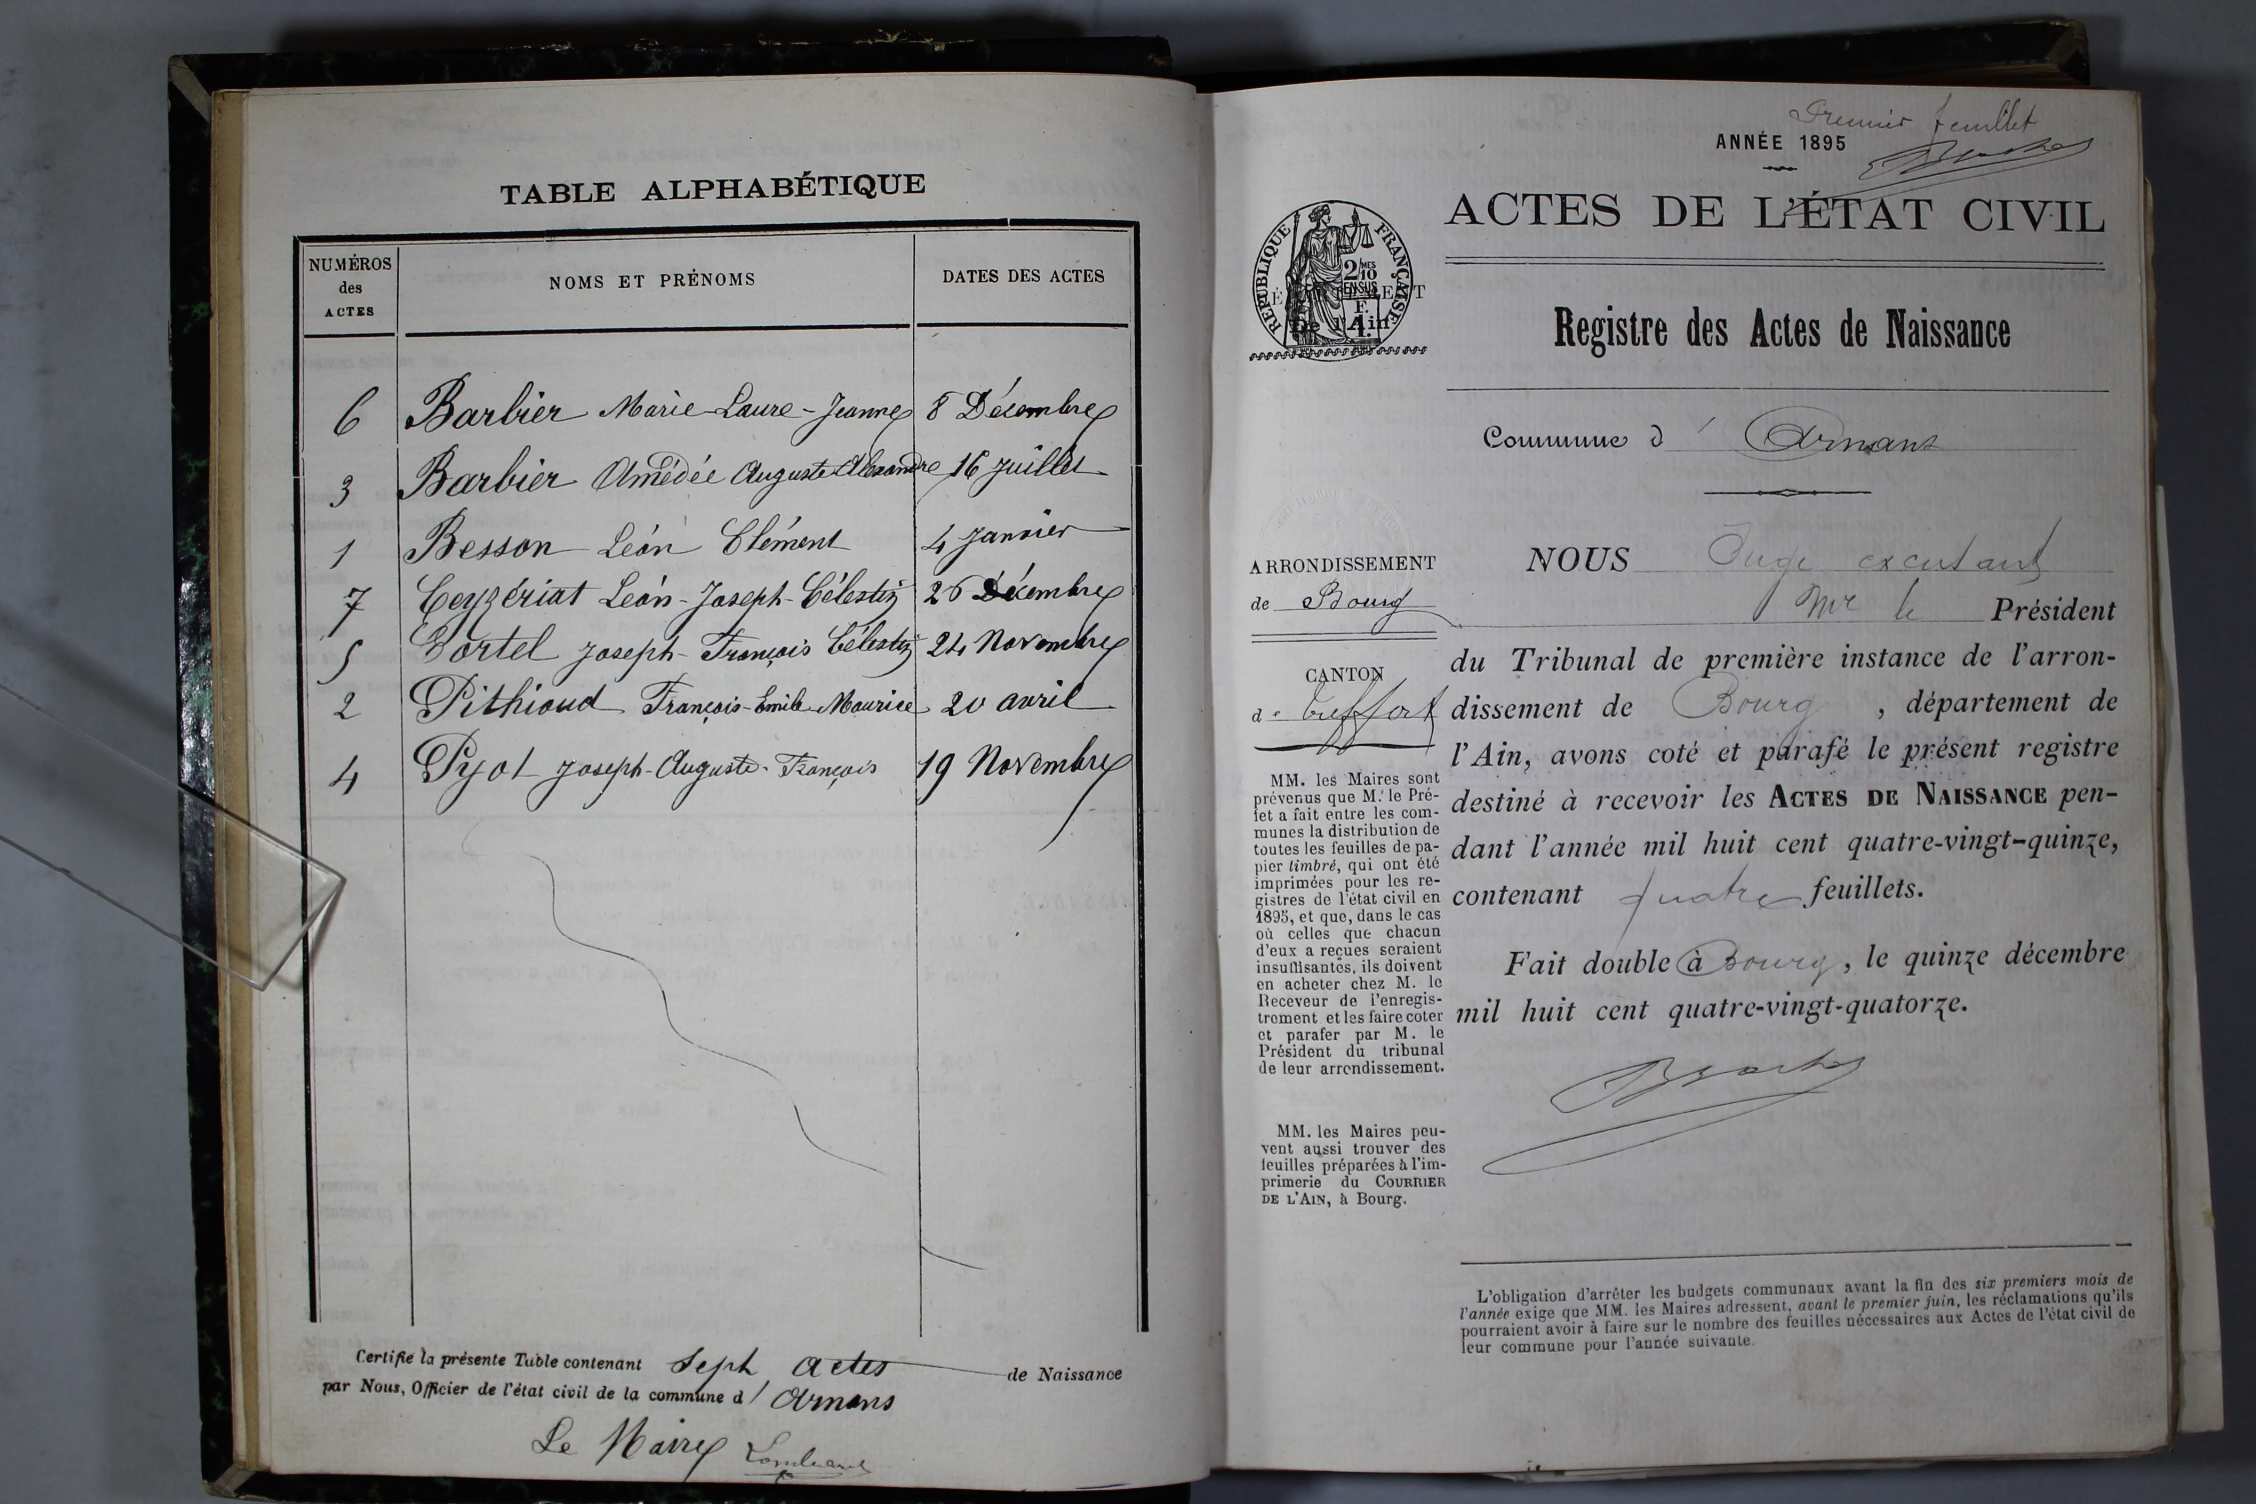 TABLE ALPHABÉTIQUE
NUMÉROS des ACTES
NOMS ET PRÉNOMS
DATES DES ACTES
6 Barbier Marie-Laure-Jeanne 8 Décembre
3 Barbier Amédée Auguste Alexandre 16 Juillet
1 Besson Léon Clément 4 Janvier
7 Ceyzériat Léon-Joseph-Célestin 26 Décembre
5 Dortel Joseph-François Célestin 24 Novembre
2 Pithioud François-Emile Maurice 20 avril
4 Pyot Joseph-Auguste-François 19 Novembre
Certifie la présente Table contenant Sept actes de Naissance
par Nous, Officier de l'état civil de la commune d' Arnans
Le Maire
Premier feuillet
ANNÉE 1895
ACTES DE L'ÉTAT CIVIL
RÉPUBLIQUE FRANÇAISE
2 MES 10 EN SUS
De l'Ain
Registre des Actes de Naissance
Commune d' Arnans
ARRONDISSEMENT
de Bourg
CANTON
de Treffort
MM. les Maires sont
prévenus que M. le Pré-
fet a fait entre les com-
munes la distribution de
toutes les feuilles de pa-
pier timbré, qui ont été
imprimées pour les re-
gistres de l'état civil en
1895, et que, dans le cas
où celles que chacun
d'eux a reçues seraient
insuffisantes, ils doivent
en acheter chez M. le
Receveur de l'enregis-
trement et les faire coter
et parafer par M. le
Président du tribunal
de leur arrondissement.
MM. les Maires peu-
vent aussi trouver des
feuilles préparées à l'im-
primerie du COURRIER
DE L'AIN, à Bourg.
NOUS Juge
Mr le Président
du Tribunal de première instance de l'arron-
dissement de Bourg, département de
l'Ain, avons coté et parafé le présent registre
destiné à recevoir les ACTES DE NAISSANCE pen-
dant l'année mil huit cent quatre-vingt-quinze,
contenant quatre feuillets.
Fait double à Bourg, le quinze décembre
mil huit cent quatre-vingt-quatorze.
L'obligation d'arrêter les budgets communaux avant la fin des six premiers mois de
l'année exige que MM. les Maires adressent, avant le premier juin, les réclamations qu'ils
pourraient avoir à faire sur le nombre des feuilles nécessaires aux Actes de l'état civil de
leur commune pour l'année suivante.